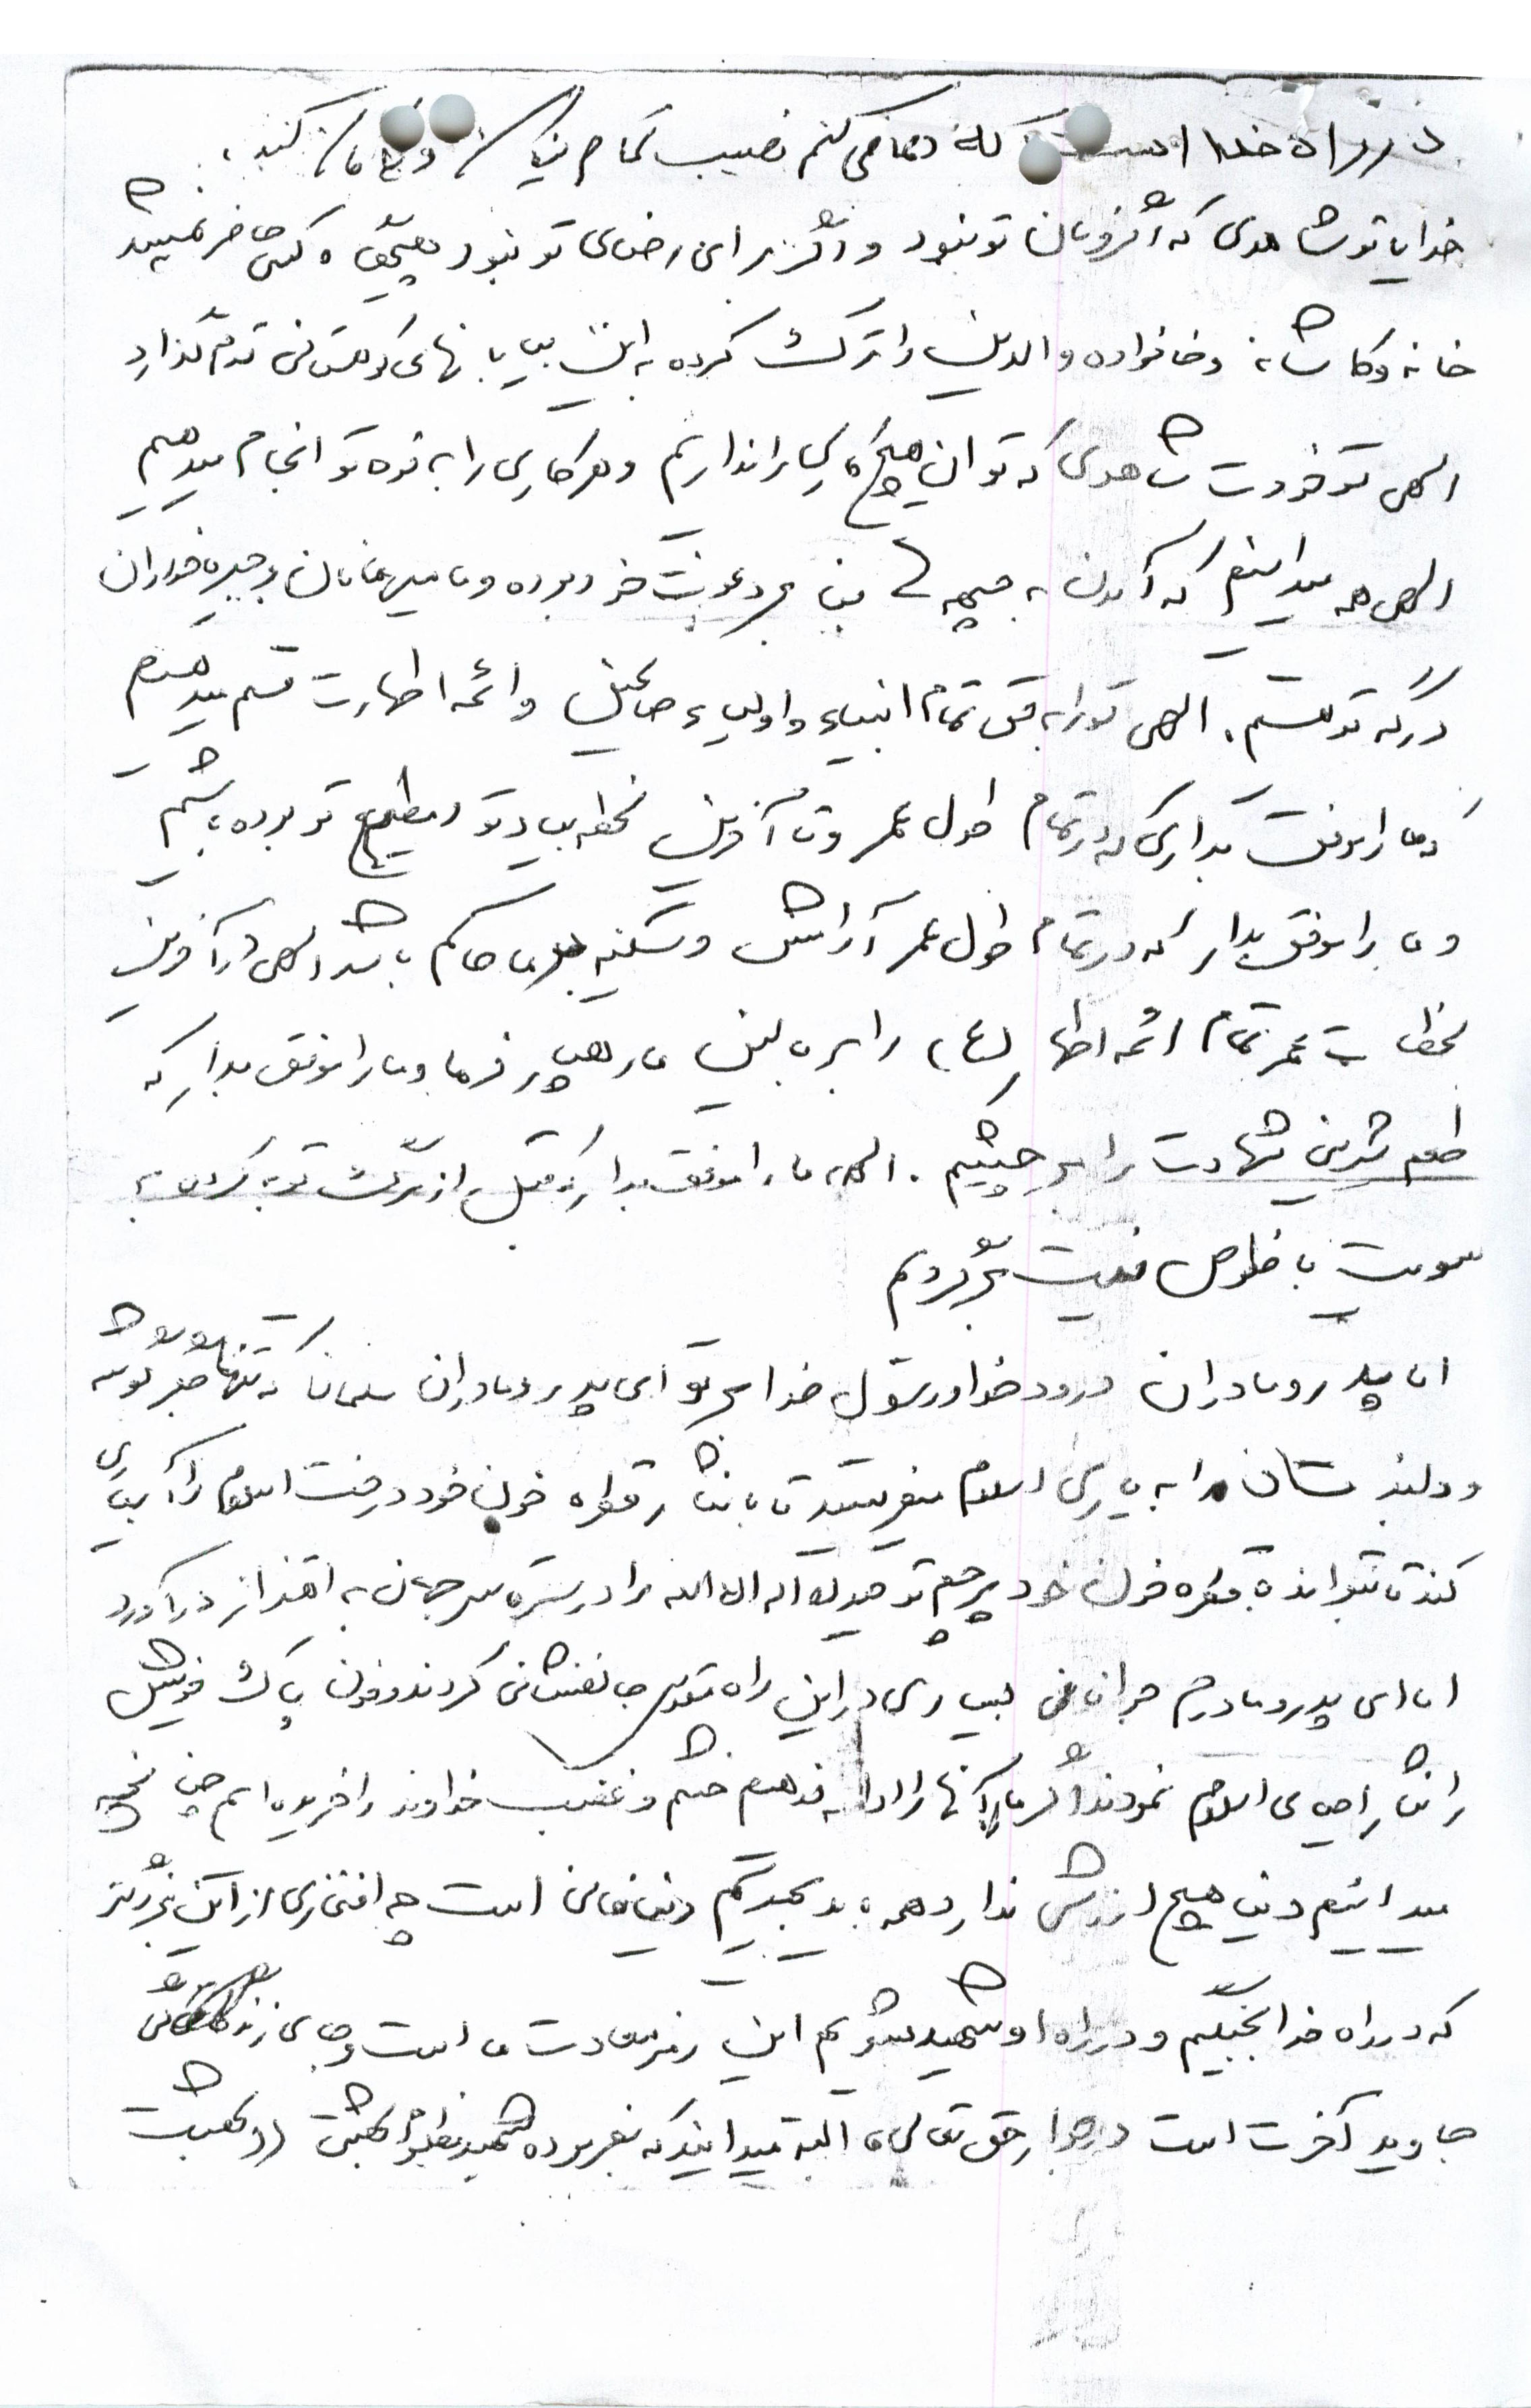 در راه خدا است که دعا می کنم نصیب تمام نیاکان و ما کند.
خدایا تو شاهدی که اگر فرمان تو نبود و اگر برای رضای تو نبود هیچوقت کسی حاضر نمیشد
خانه و کاشانه و خانواده والدین را ترک کرده به این بیابانهای کوهستانی قدم گذارد
الهی تو خودت شاهدی که توان هیچ کاری را نداریم و هر کاری را به قوه تو انجام میدهیم
الهی همه میدانیم که آمدن به جبهه بنا بر دعوت خود بوده و ما میهمانان و جیره خوران
درگه تو هستیم. الهی تو را به حق تمام انبیاء و اولیاء صالحین و ائمه اطهارت قسم میدهیم
که ما را موفق بداری که در تمام طول عمر و تا آخرین لحظه بیاد تو و مطیع تو بوده باشیم
و ما را موفق بدار که در تمام طول عمر آرامش و سکینه بر ما حاکم باشد الهی در آخرین
لحظات عمر تمام ائمه اطهار (ع) را بر بالین ما رهسپار فرما و ما را موفق بدار که
طعم شیرین شهادت را بچشیم. الهی ما را موفق بدار که قبل از مرگ توبه کرده به
سویت با خلوص نیت برگردیم
اما پدر و مادران درود خدا و رسول خدا بر تو ای پدر و مادران مسلمان که تنها جگرگوشه
و دلبندتان را به یاری اسلام میفرستید تا با نثار قطره خون خود درخت اسلام را آبیاری
کند تا بتواند با قطره خون خود پرچم توحید لا اله الا الله را در سرتاسر جهان به اهتزاز درآورد
اما ای پدر و مادرم جوانان بسیاری در این راه مقدس جانفشانی کردند و خون پاک خویش
را نثار احیای اسلام نمودند اگر ما راه آنها را ادامه ندهیم خشم و غضب خداوند را خریده ایم چنانچه
میدانیم دنیا هیچ ارزشی ندارد همه باید بمیریم دنیا فانی است چه افتخاری از این بزرگتر
که در راه خدا بجنگیم و در راه او شهید شویم این رمز سعادت ما است و جای زندگانی
جاوید آخرت است در جوار حق تعالی البته میدانید که بفرموده شهید مظلوم بهشتی (( بهشت